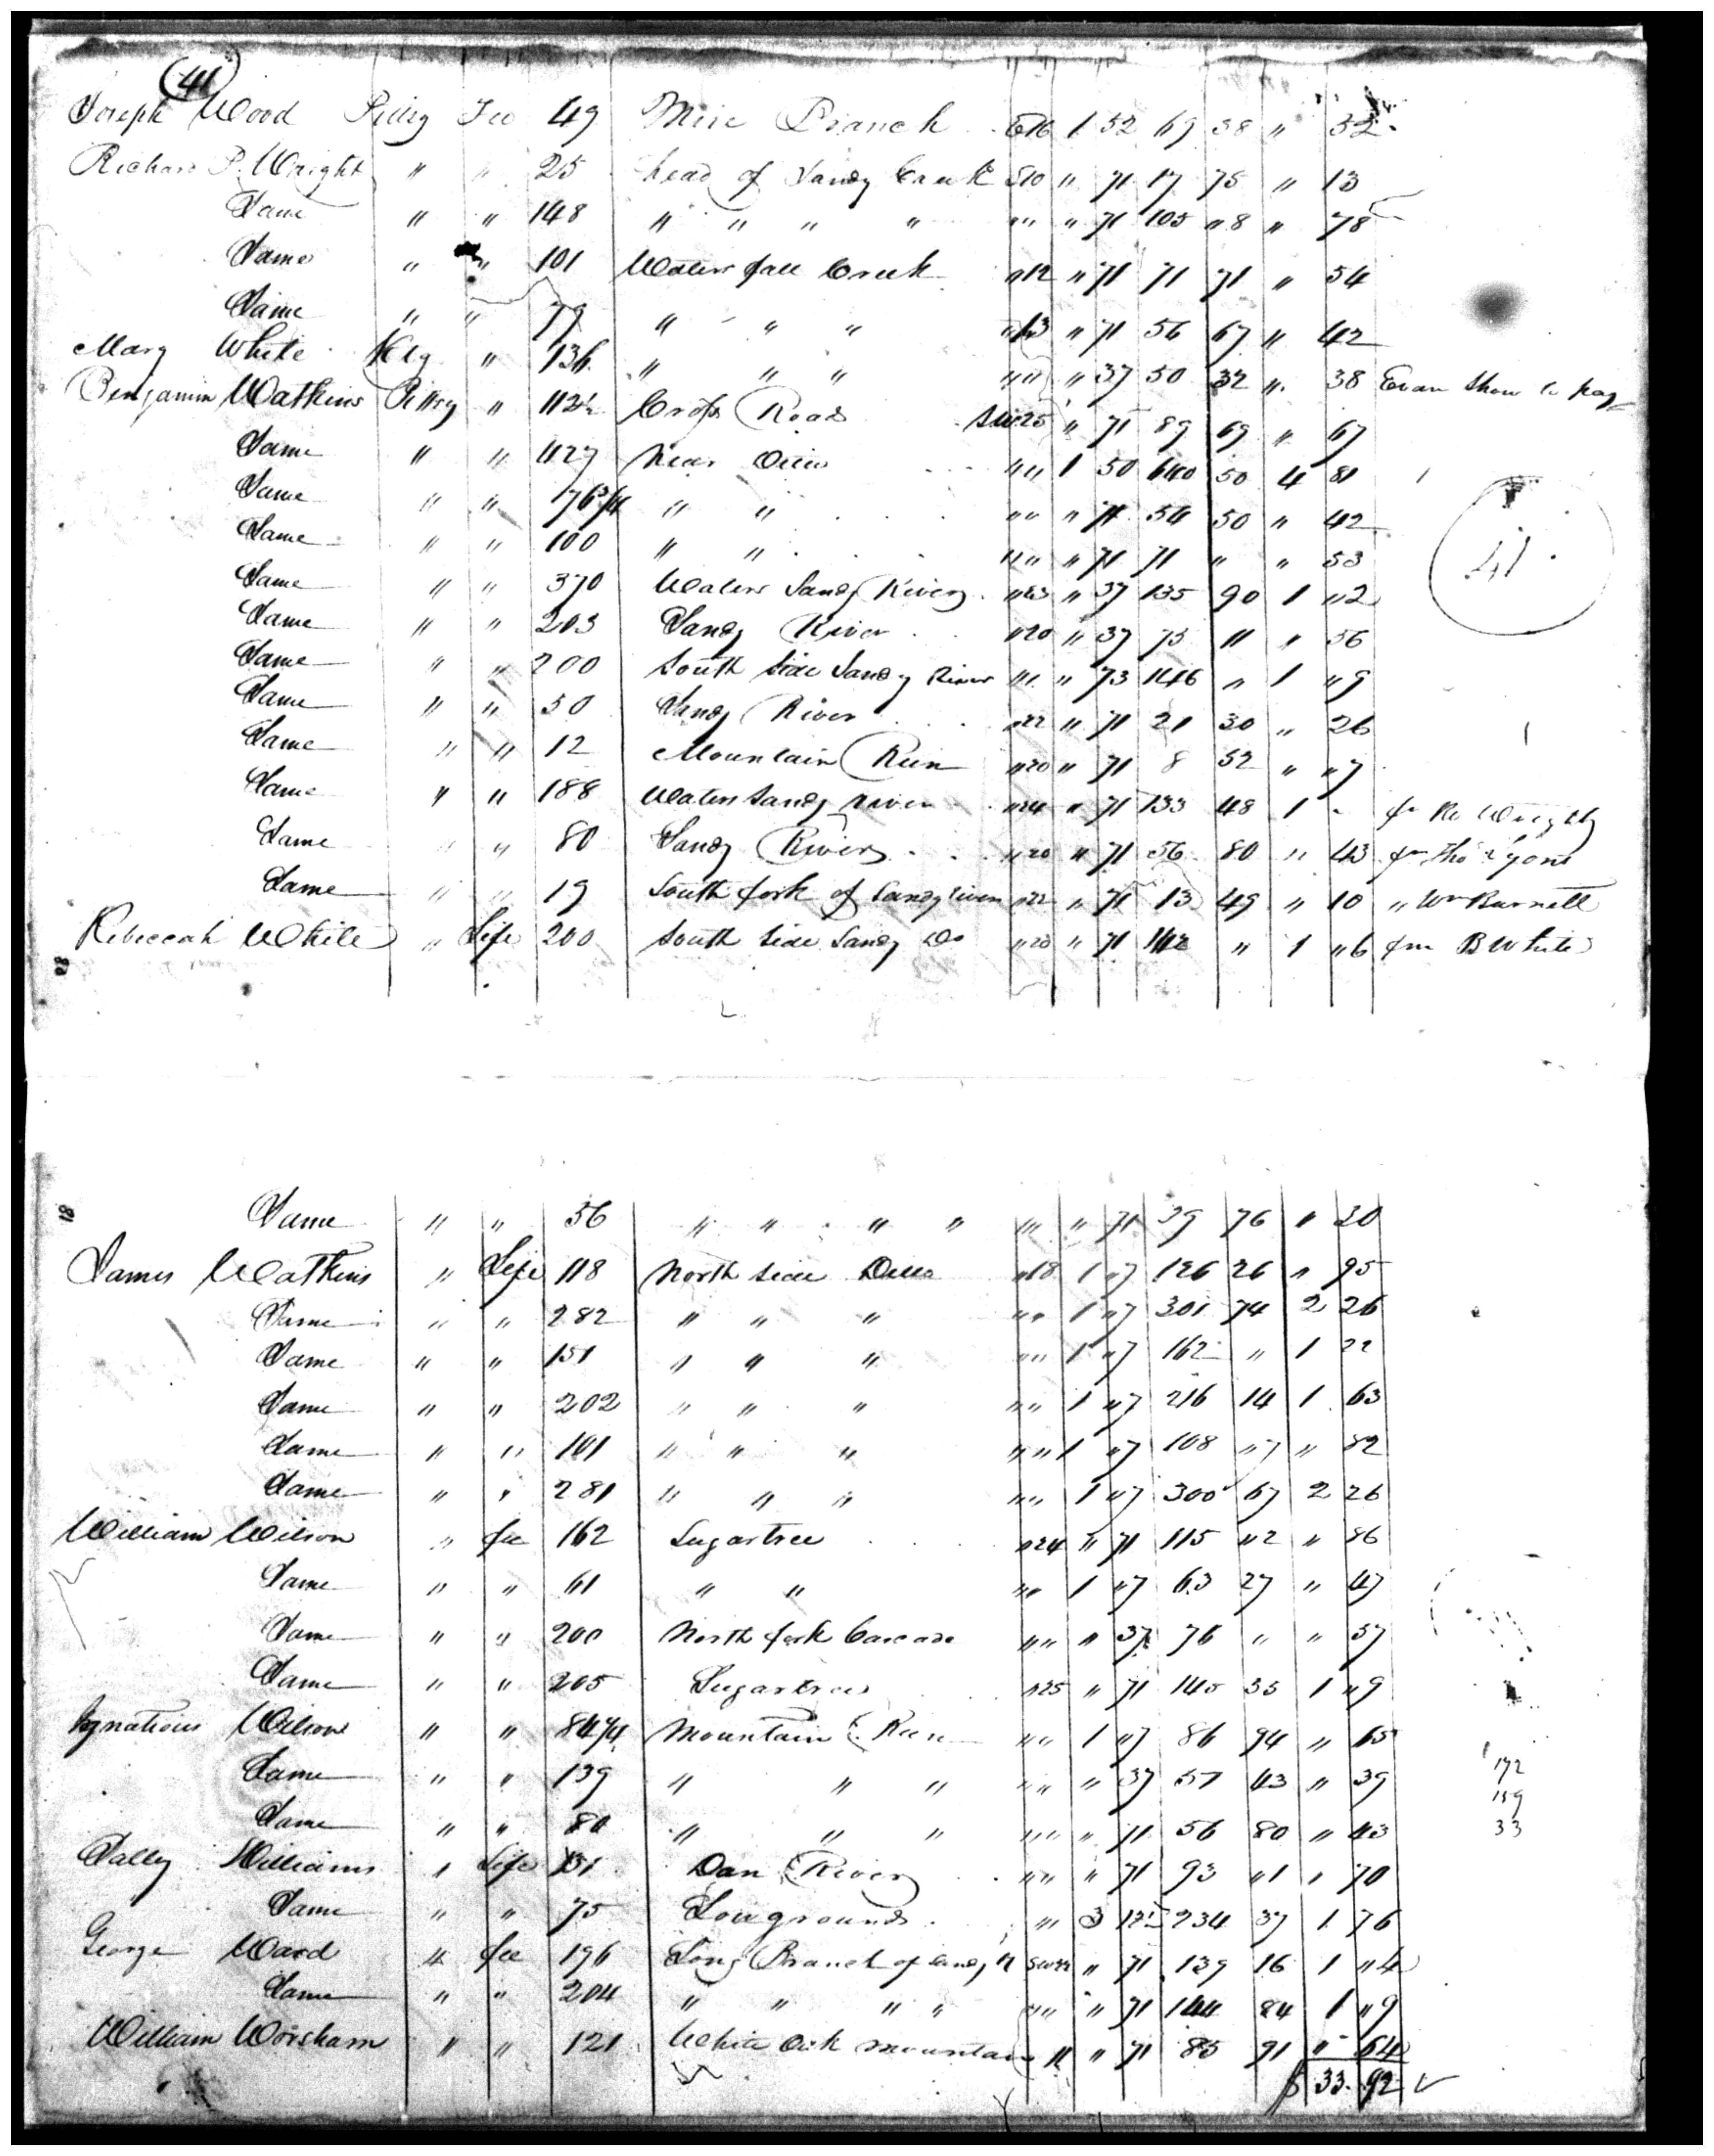 41
Joseph Wood Pittsy Fee 49 Mire Branch E16 1 52 69 38 " 52
Richard P. Wright " " 25 head of Sandy Creek S10 " 71 17 75 " 13
Same " " 148 " " " " " " " 71 105 " 8 " 78
Same " " 101 Waters fall Creek " 12 " 71 71 71 " 54
Same " " 79 " " " " 13 " 71 56 67 " 42
Mary White " 136 " " " " " " 37 50 32 " 38 Evan Shaw to pay
Benjamin Watkins Pittsy " 112½ Cross Road SW25 " 71 89 69 " 67
Same " " 427 Near Ditto " " 1 50 640 50 4 81
Same " " 76¾ " " " " " 71 54 50 " 42
Same " " 100 " " " " " 71 71 " " 53
Same " " 370 Waters Sandy River " 23 " 37 135 90 1 " 2
Same " " 203 Sandy River " 20 " 37 75 11 " 56
Same " " 200 South Side Sandy River " " " 73 146 " 1 " 9
Same " " 30 Sandy River " 22 " 71 21 30 " 26
Same " " 12 Mountain Run " 20 " 71 8 52 " " 7
Same " " 188 Waters Sandy River " 24 " 71 133 48 1 - fr Wright
Same " " 80 Sandy River " 20 " 71 56 80 " 43 fm Tho Lyons
Same " " 19 South fork of Sandy River " 22 " 71 13 49 " 10 " Wm Burnett
Rebeccah White " Life 200 South Side Sandy Do " 20 " 71 142 " 1 " 6 fm B White
41
Same " " 56 " " " " " " " 71 39 76 " 30
James Watkins " Life 118 North Side Ditto " 18 1 " 7 126 26 " 95
Same " " 282 " " " " " 1 " 7 301 74 2 26
Same " " 151 " " " " " 1 " 7 162 " 1 22
Same " " 202 " " " " " 1 " 7 216 14 1 63
Same " " 101 " " " " " 1 " 7 108 " 7 " 82
Same " " 281 " " " " " 1 " 7 300 67 2 26
William Wilson " fee 162 Sugartree " 24 " 71 115 " 2 " 86
Same " " 61 " " " " 1 " 7 63 27 " 47
Same " " 200 North fork Cascade " " " 37 76 " " 57
Same " " 205 Sugartree " 25 " 71 145 55 1 " 9
Ignatious Wilson " " 84¼ Mountain Run " " 1 " 7 86 94 " 65
Same " " 139 " " " " " " 37 51 43 " 39
172
139
33
Same " " 80 " " " " " " 71 56 80 " 43
Sally Williams " Life 131 Dan River " " " 71 93 " 1 " 70
Same " " 75 Lowgrounds " " 3 12½ 234 37 1 76
George Ward " fee 196 Long Branch of Sandy R SW22 " 71 139 16 1 " 4
Same " " 204 " " " " " " " 71 144 84 1 " 9
William Worsham " " 121 White Oak Mountain 11 " 71 85 91 " 64
$ 33.92